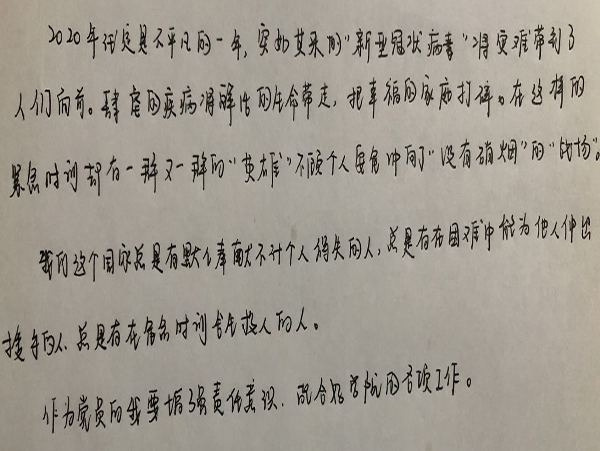 2020年注定是不平凡的一年,突如其来的"新型冠状病毒"将灾难带到了
人们向前。肆虐的疾病将鲜活的生命带走,把幸福的家庭打碎。在这样的
紧急时刻却有一群又一群的"英雄"不顾个人安危冲向了"没有硝烟"的"战场"。
我们这个国家总是有默默奉献不计个人得失的人,总是有在困难中能为他人伸出
援手的人、总是有在危急时刻舍生救人的人。
作为党员的我要增强责任意识、配合好学院的各项工作。